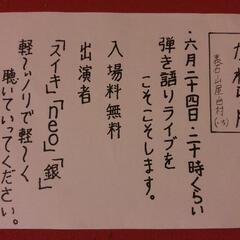 表石山屋台村
(いち)
・六月二十四日・二十時くらい
弾き語りライブを
こそこそします。
入場料無料
出演者
「スイキ」「neo」「銀」
軽～いノリで軽～く
聴いていってください。